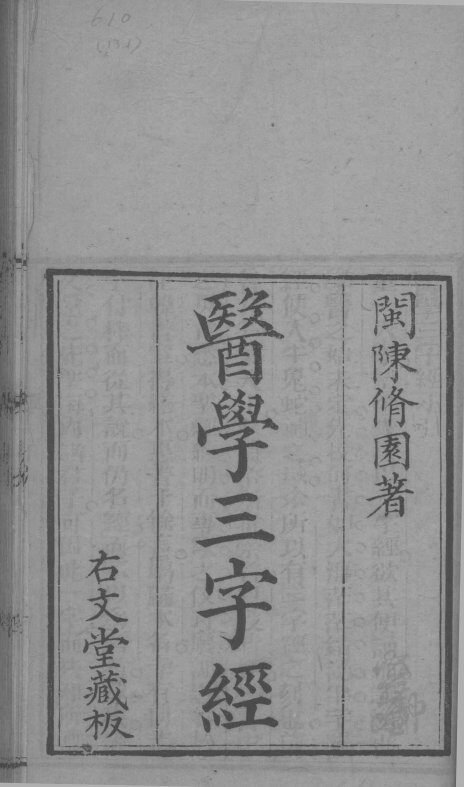 610
閩陳脩園著
醫學三字經
右文堂藏板